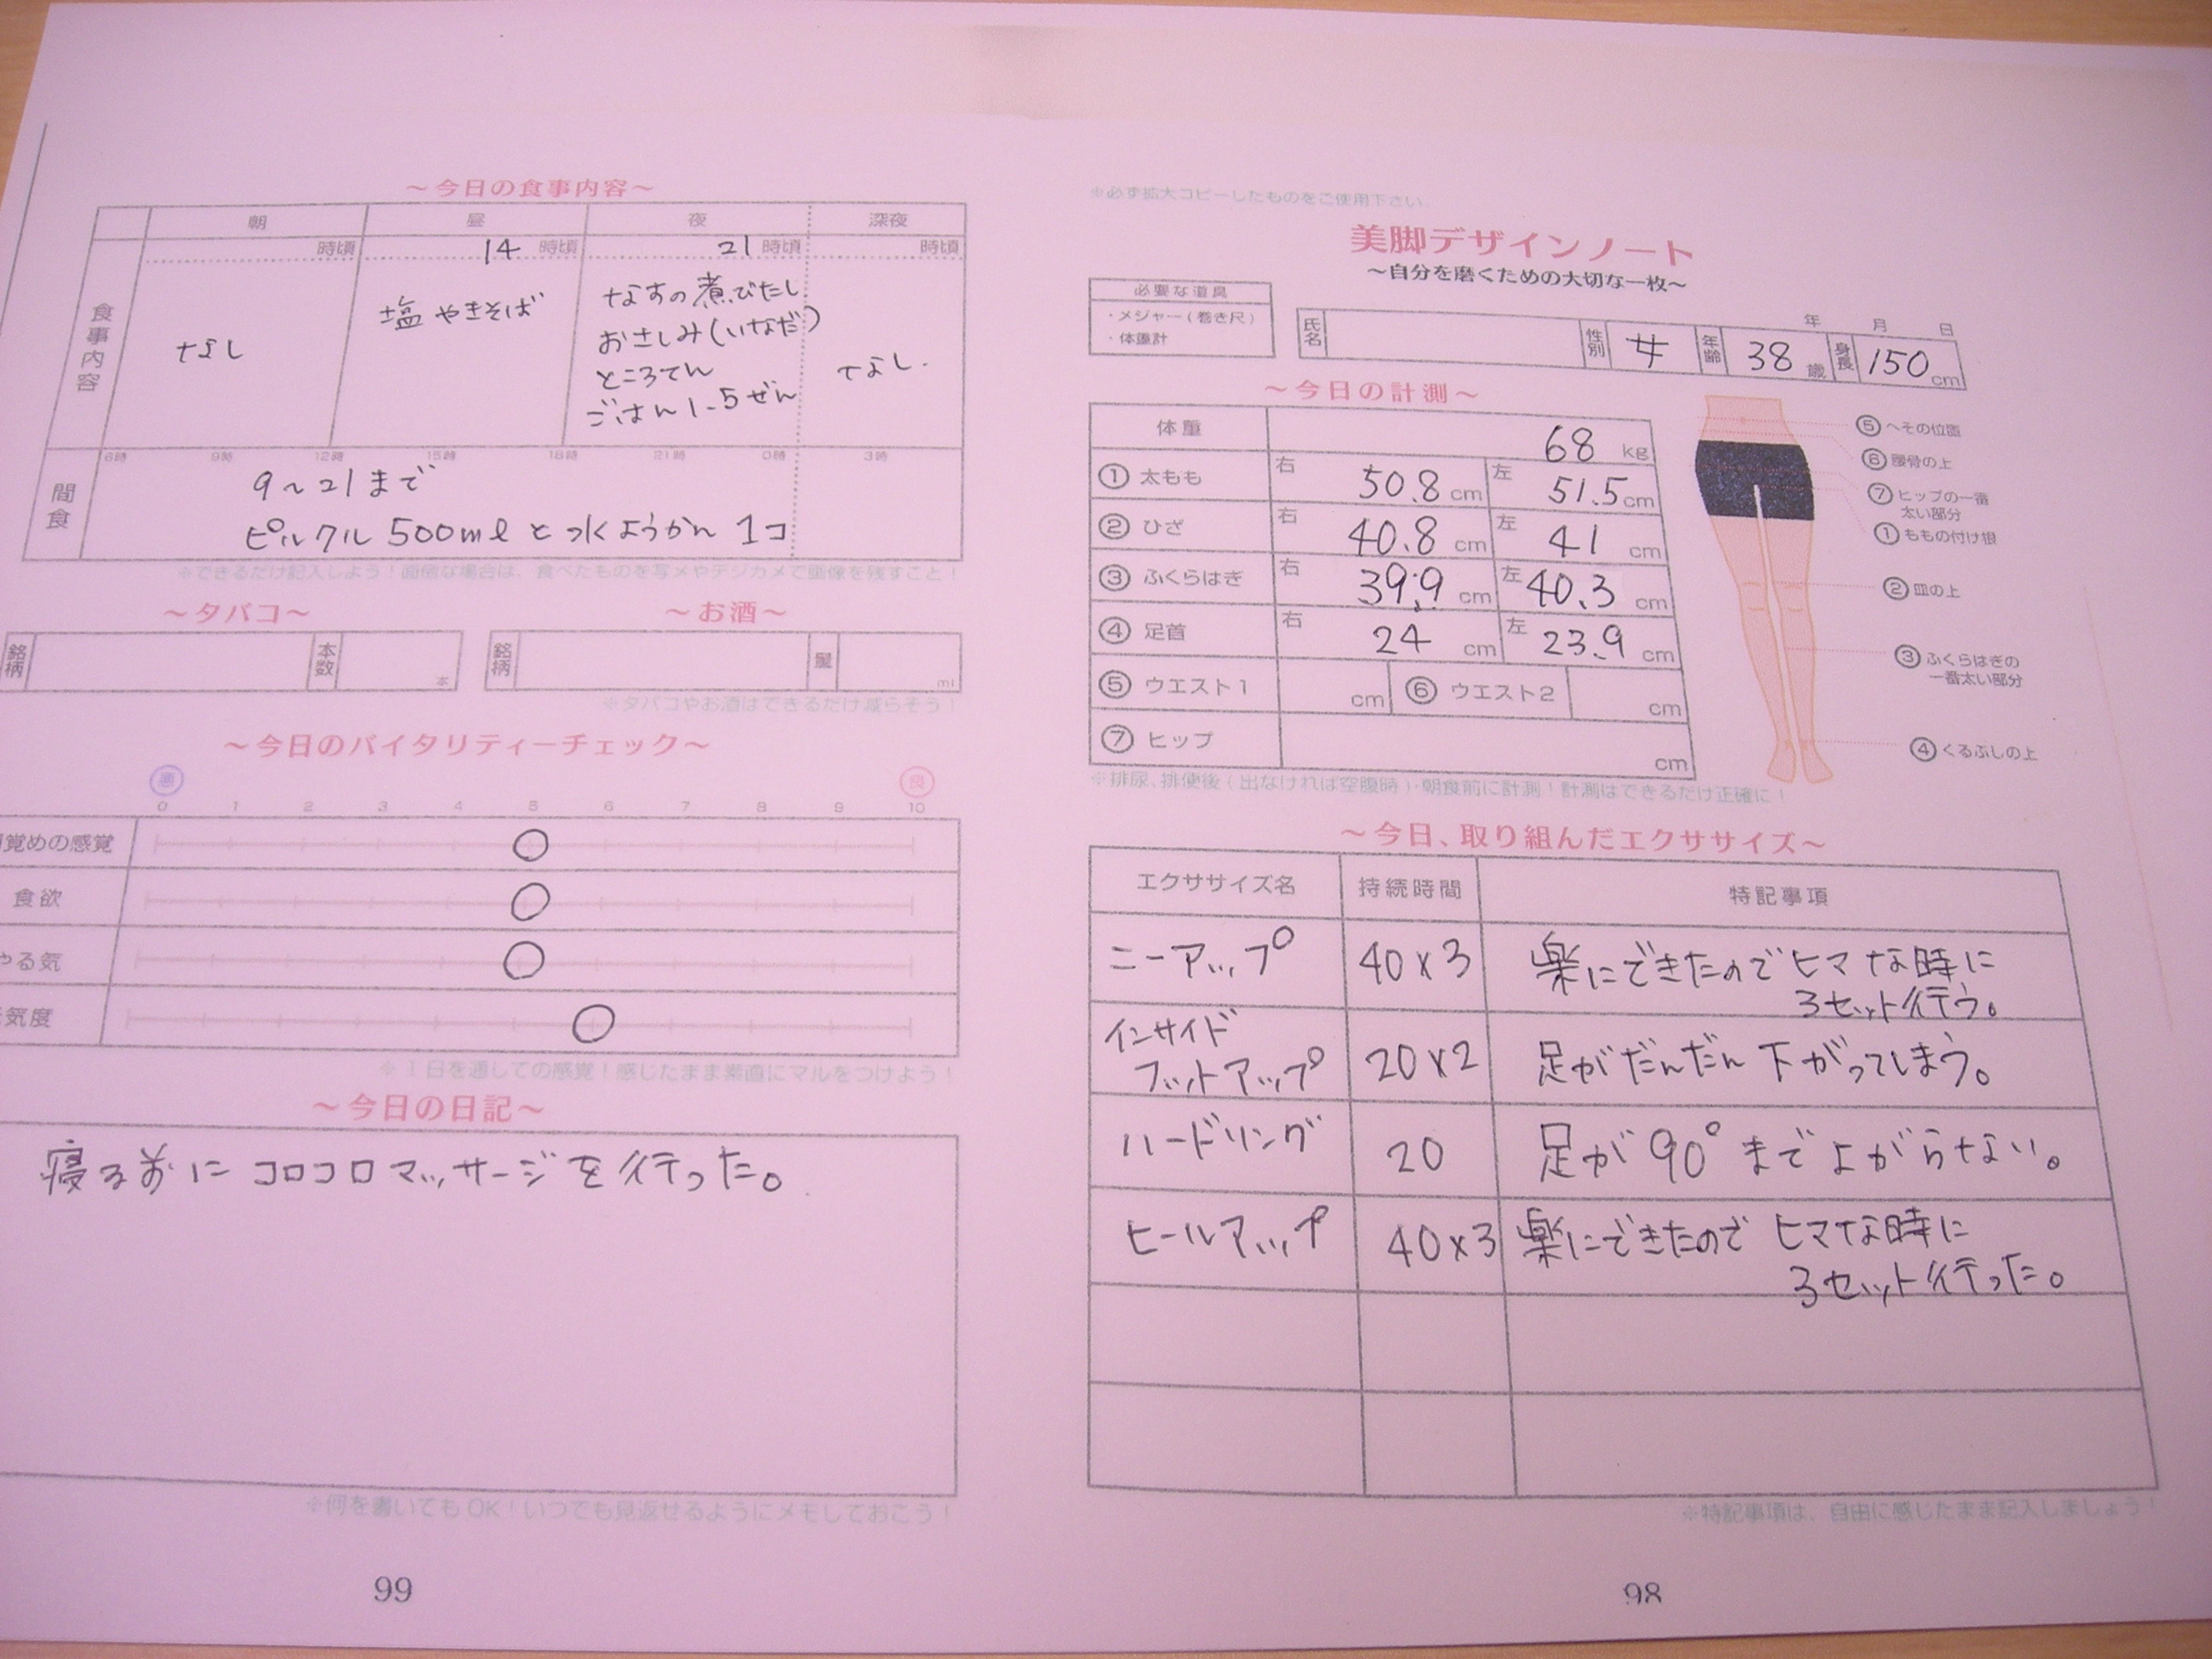 ※必ず拡大コピーしたものをご使用下さい。
美脚デザインノート
～自分を磨くための大切な一枚～
必要な道具
・メジャー(巻き尺)
・体重計
年 月 日
氏名 性別 女 年齢 38 歳 身長 150 cm
～今日の計測～
体重 68 kg
① 太もも 右 50.8 cm 左 51.5 cm
② ひざ 右 40.8 cm 左 41 cm
③ ふくらはぎ 右 39.9 cm 左 40.3 cm
④ 足首 右 24 cm 左 23.9 cm
⑤ ウエスト1 cm ⑥ ウエスト2 cm
⑦ ヒップ cm
※排尿、排便後(出なければ空腹時)・朝食前に計測！計測はできるだけ正確に！
⑤ へその位置
⑥ 腰骨の上
⑦ ヒップの一番
太い部分
① ももの付け根
② 皿の上
③ ふくらはぎの
一番太い部分
④ くるぶしの上
～今日、取り組んだエクササイズ～
エクササイズ名 持続時間 特記事項
ニーアップ 40×3 楽にできたのでヒマな時に
3セット行う。
インサイド
フットアップ 20×2 足がだんだん下がってしまう。
ハードリング 20 足が90°まで上がらない。
ヒールアップ 40×3 楽にできたのでヒマな時に
3セット行った。
※特記事項は、自由に感じたまま記入しましょう！
98
～今日の食事内容～
朝 昼 夜 深夜
時頃 14 時頃 21 時頃 時頃
食事内容
なし
塩やきそば
なすの煮びたし
おさしみ(いなだ)
ところてん
ごはん1.5ぜん
なし.
6時 9時 12時 15時 18時 21時 0時 3時
間食
9～21まで
ピルクル500mlと水ようかん1コ
※できるだけ記入しよう！面倒な場合は、食べたものを写メやデジカメで画像を残すこと！
～タバコ～
銘柄 本数 本
～お酒～
銘柄 量 ml
※タバコやお酒はできるだけ減らそう！
～今日のバイタリティーチェック～
悪 良
0 1 2 3 4 5 6 7 8 9 10
覚めの感覚
食欲
やる気
気度
※1日を通しての感覚！感じたまま素直にマルをつけよう！
～今日の日記～
寝る前にコロコロマッサージを行った。
※何を書いてもOK！いつでも見返せるようにメモしておこう！
99